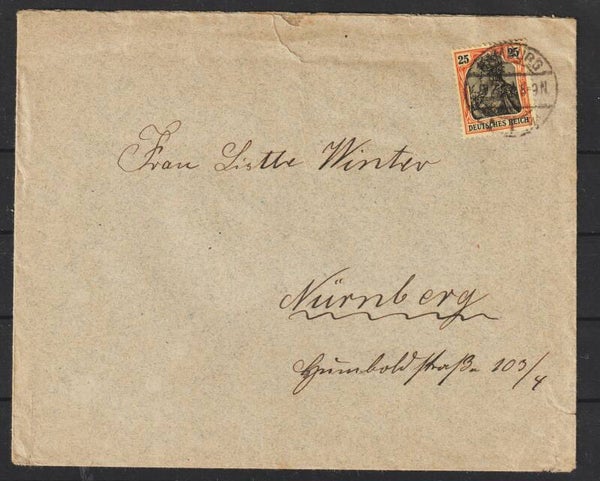 25 25
DEUTSCHES REICH
8-9N.
Frau Lisette Winter
Nürnberg
Humboldstraße 103/4